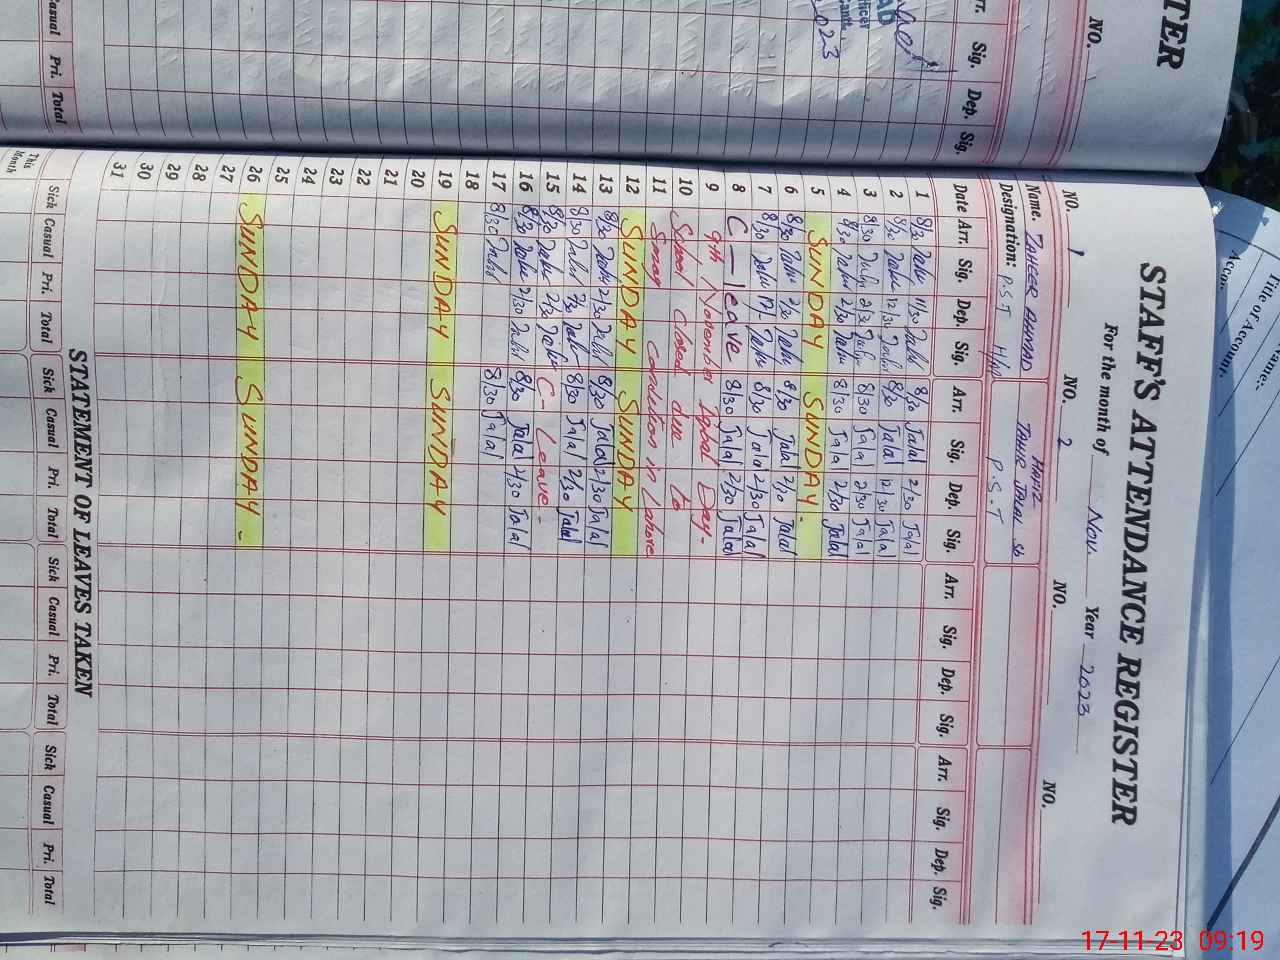 STAFF'S ATTENDANCE REGISTER
For the month of Nov. Year 2023
NO. 1 NO. 2 NO. NO.
Name. ZAHEER AHMAD HAFIZ TAHIR JALAL Sb
Designation: P.S.T H/M P.S.T
Date Arr. Sig. Dep. Sig. Arr. Sig. Dep. Sig. Arr. Sig. Dep. Sig. Arr. Sig. Dep. Sig.
1 8/30 11/30 8/30 Jalal 2/30 Jalal
2 8/30 12/30 8/30 Jalal 12/30 Jalal
3 8/30 2/30 8/30 Jalal 2/30 Jalal
4 8/30 2/30 8/30 Jalal 2/30 Jalal
5 SUNDAY SUNDAY.
6 8/30 2/30 8/30 Jalal Jalal
7 8/30 8/30 Jalal 2/30 Jalal
8 C-leave 8/30 Jalal 2/30 Jalal
9 9th November Iqbal Day-
10 School closed due to
11 Smog condition in Lahore
12 SUNDAY SUNDAY
13 8/30 2/30 8/30 Jalal 2/30 Jalal
14 8/30 2/30 8/30 Jalal 2/30 Jalal
15 8/30 2/30 C-Leave-
16 8/30 2/30 8/30 Jalal 2/30 Jalal
17 8/30 8/30 Jalal
18
19 SUNDAY SUNDAY
20
21
22
23
24
25
26 SUNDAY SUNDAY-
27
28
29
30
31
STATEMENT OF LEAVES TAKEN
Sick Casual Pri. Total Sick Casual Pri. Total Sick Casual Pri. Total Sick Casual Pri. Total
This Month
TER
NO.
Sig. Dep. Sig.
2023
Casual Pri. Total
Title of Account:
17-11-23 09:19